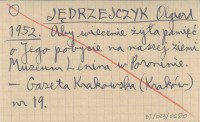 JĘDRZEJCZYK Olgierd
1952. Aby wiecznie żyła pamięć
o Jego pobycie na naszej ziemi
Muzeum Lenina w Poroninie.
– Gazeta Krakowska (Kraków)
nr 19.